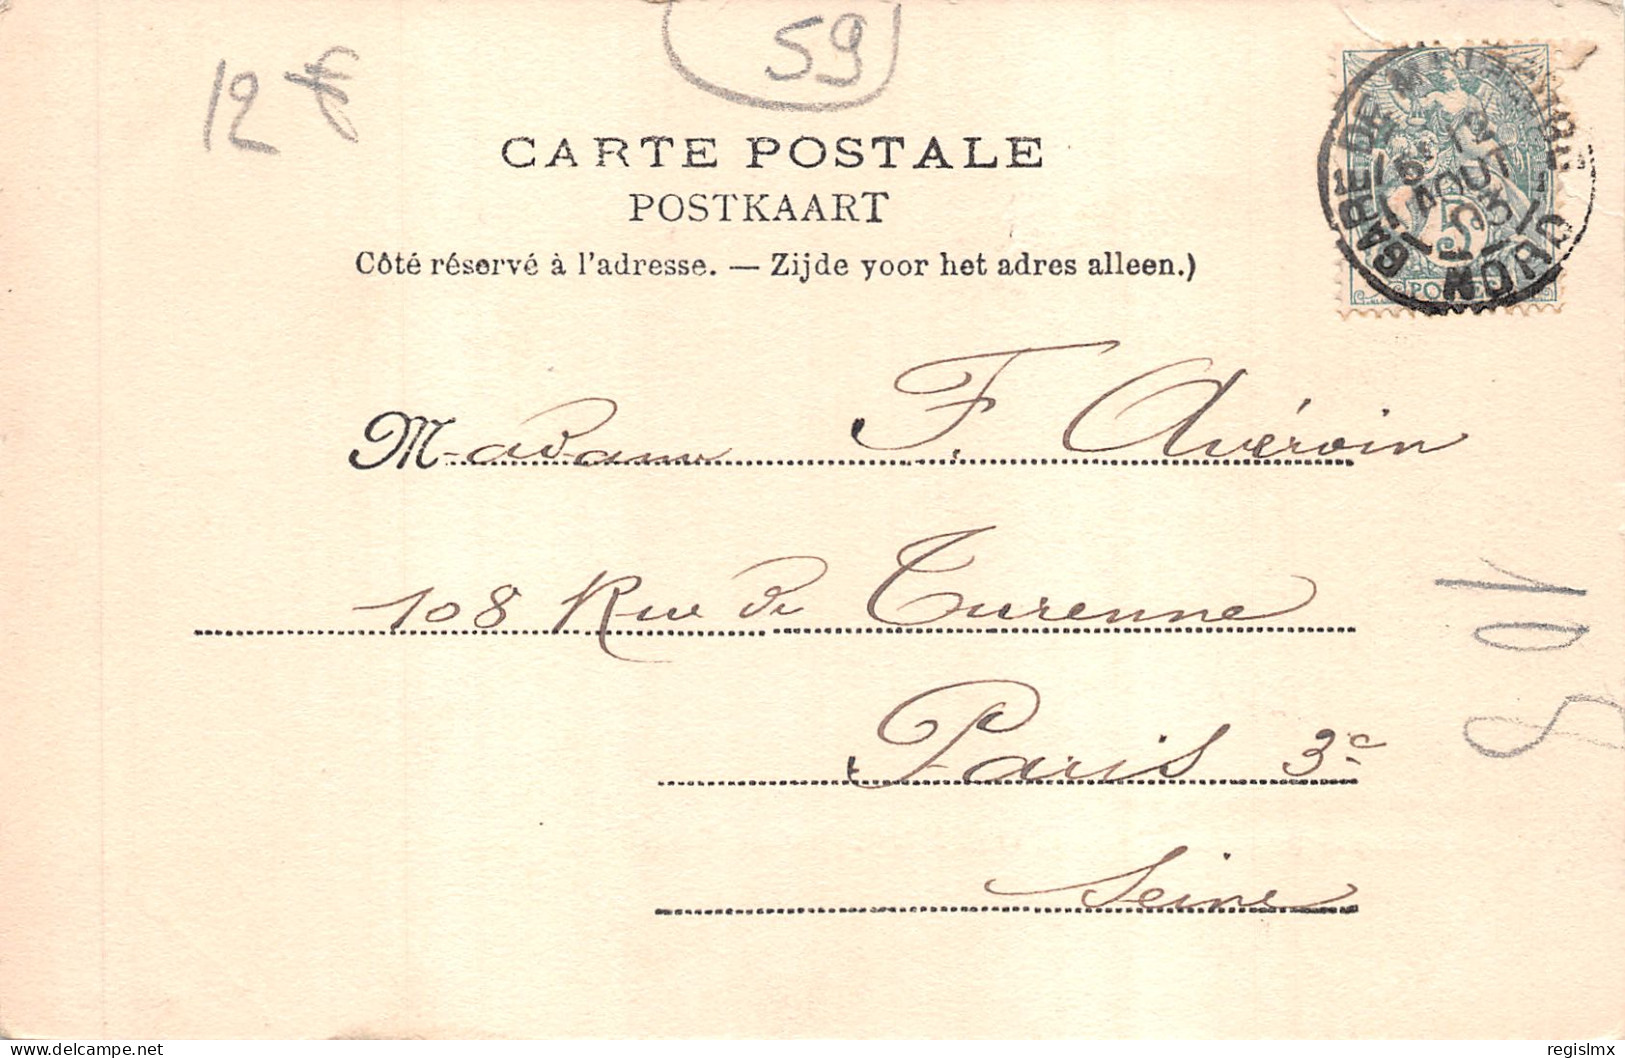 12 f
59
CARTE POSTALE
POSTKAART
Côté réservé à l'adresse. — Zijde voor het adres alleen.)
GARE DE
6E 12
AOUT
03
NORD
5
POSTE
Madame F. Avéroin
108 Rue de Turenne
Paris 3e
Seine
108
delcampe.net
regislmx